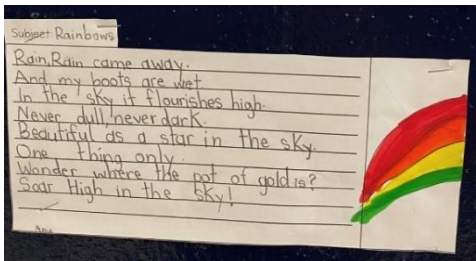 Subject Rainbows
Rain, Rain came away.
And my boots are wet
In the sky it flourishes high.
Never dull, never dark.
Beautiful as a star in the sky.
One thing only.
Wonder where the pot of gold is?
Soar High in the sky!